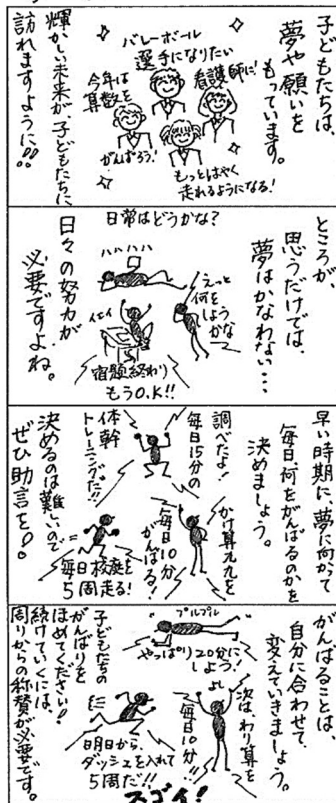 子どもたちは、
夢や願いを
もっています。
バレーボール
選手になりたい
看護師に!
今年は
算数を
がんばろう!
もっとはやく
走れるようになる!
輝かしい未来が、子どもたちに
訪れますように!!
ところが、
思うだけでは、
夢はかなわない…
日常はどうかな?
ハハハハ
えっと
何を
しよう
かな
イエイ
宿題終わり
もうO.K!!
日々の努力が
必要ですよね。
早い時期に、夢に向かって
毎日、何をがんばるのかを
決めましょう。
調べたよ!
毎日15分の
体幹
トレーニングだ!!
かけ算九九を
毎日10分
がんばる!
毎日校庭を
5周走る!
決めるのは難しいので
ぜひ助言を!!
がんばることは、
自分に合わせて、
変えていきましょう。
プルプル
やっぱり20分に
しよう!
次は、わり算を
毎日10分!!
明日から、
ダッシュを入れて
5周だ!!
子どもたちの
がんばりを
ほめてください!!
続けていくには、
周りからの称賛が必要です。
スゴイ!